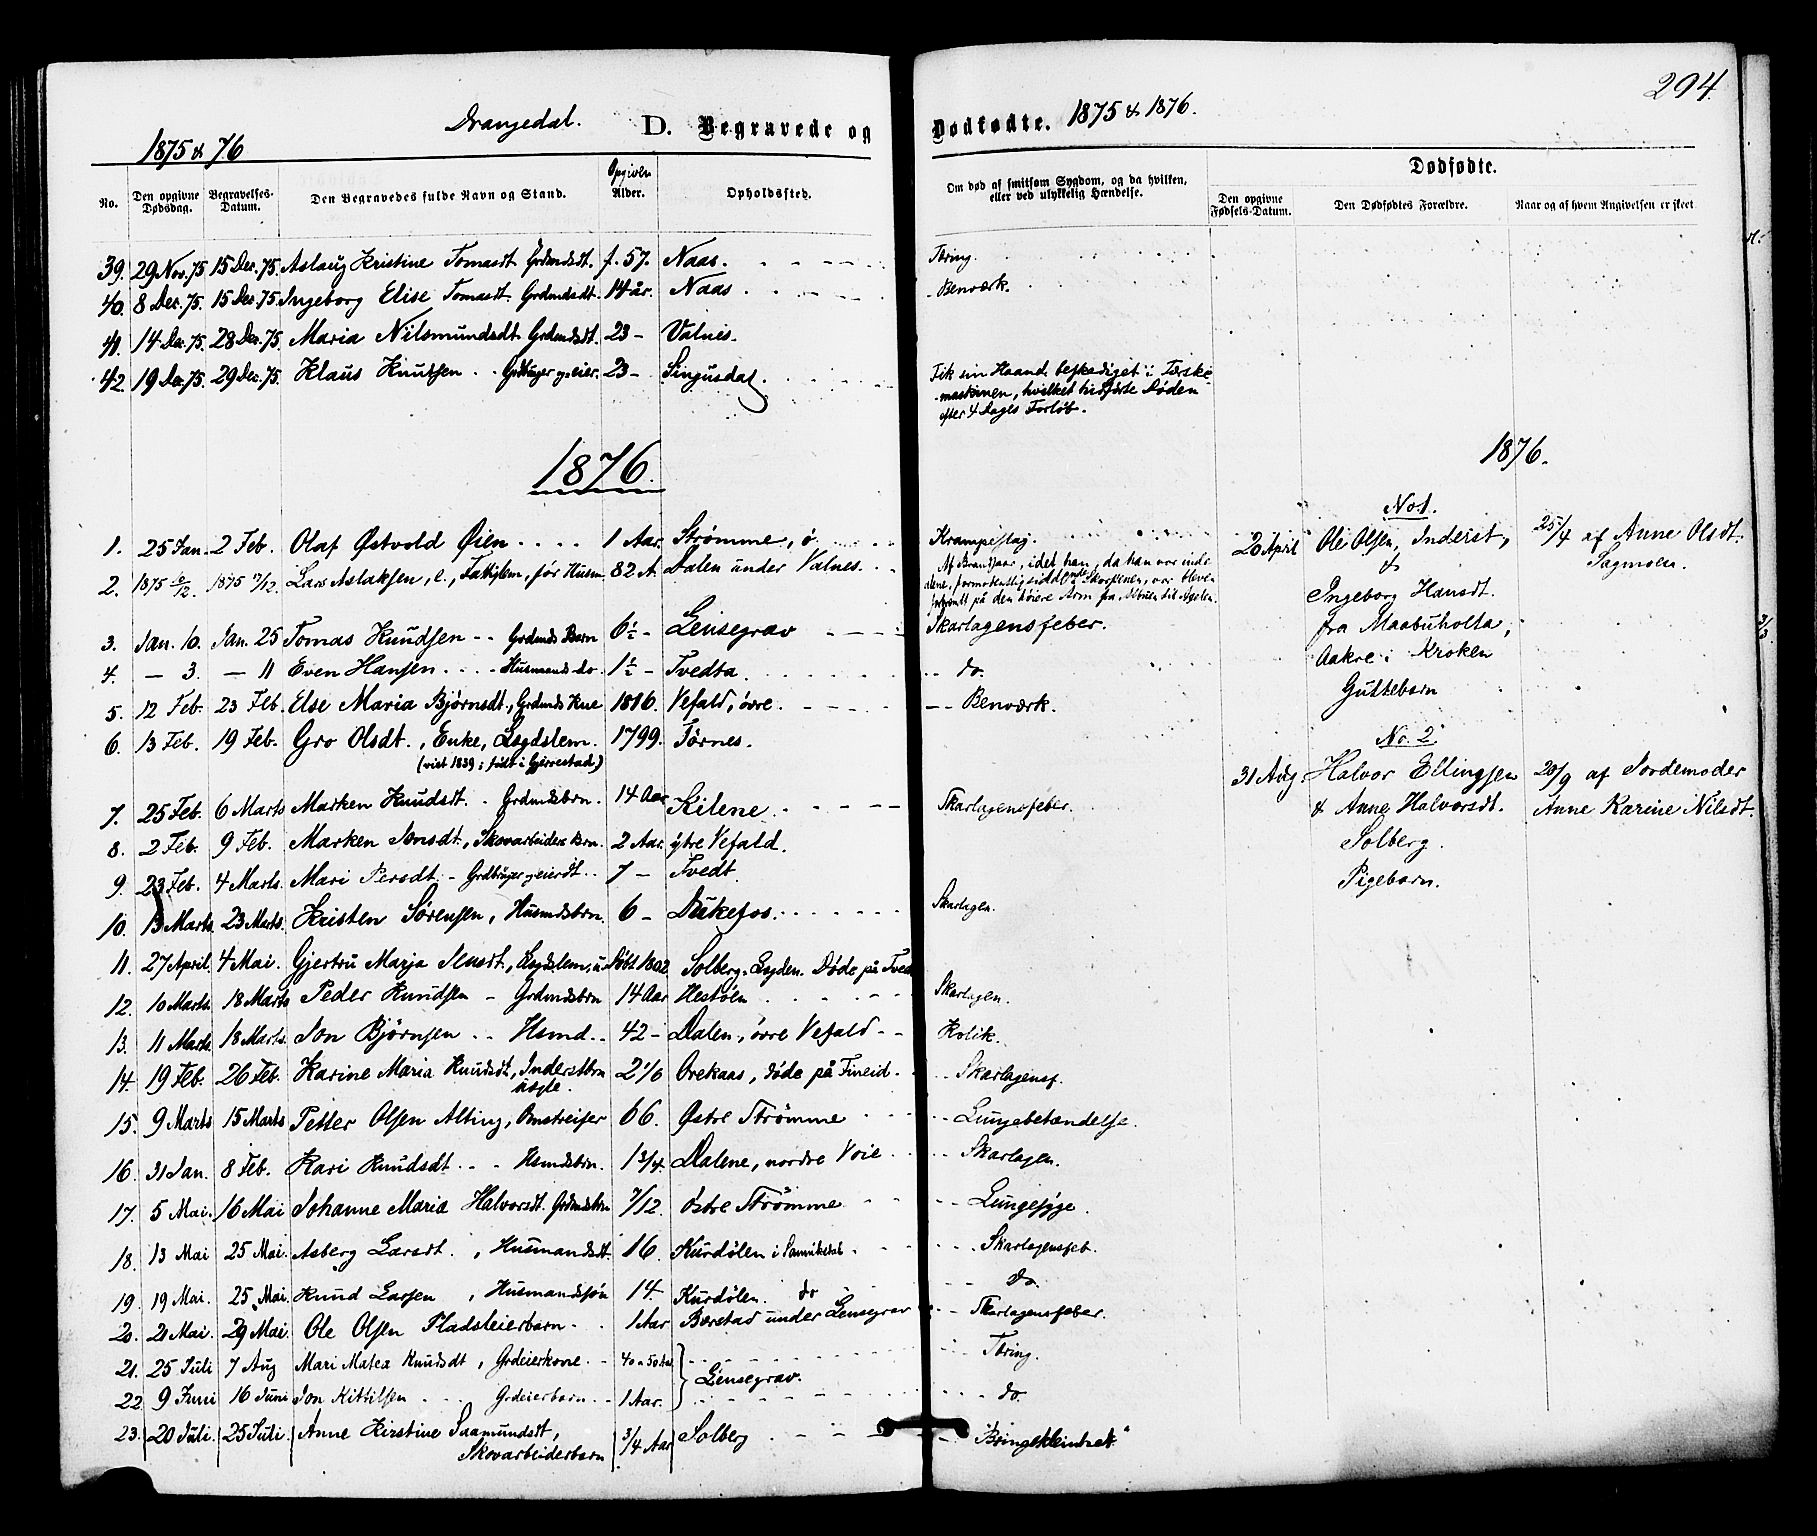 294.
Drangedal. D. Begravede og Dødfødte. 1875 & 1876.
1875 & 76
Dødfødte.
No. Den opgivne Dødsdag. Begravelses-Datum. Den Begravedes fulde Navn og Stand. Opgiven Alder. Opholdssted. Om død af smitsom Sygdom, og da hvilken, eller ved ulykkelig Hændelse. Den opgivne Fødsels-Datum. Den Dødfødtes Forældre. Naar og af hvem Angivelsen er skeet
39. 29 Nov. 75 15 Dec. 75. Aslaug Kristine Tomasdt. Grdmdsdt. f. 57. Naas. Tæring.
40. 8 Dec. 75. 15 Dec. 75 Ingeborg Elise Tomasdt. Grdmdsdt. 14 år. Naas. Benværk.
41. 14 Dec. 75. 28 Dec. 75 Maria Nilsmundsdt. Grdmdsdt. 23 - Valnes.
42. 19 Dec. 75. 29 Dec. 75. Klaus Knutsen Grdbruger og eier. 23 - Singusdal. Fik sin Haand beskadiget i Tærske-
maskinen, hvilket hidførte Døden
efter 4 Dages Forløb.
1876. 1876.
No 1.
1. 25 Jan. 2 Feb. Olaf Østvold Øien 1 Aar. Strømme, ø. Krampeslag. 20 April Ole Olsen, Inderst, 25/4 af Anne Olsdt.
& Sagmoen.
2. 1875 6/12. 1875 7/12. Lars Aslaksen, e., Fattiglem, før Husm. 82 A. Dalen under Valnes. Af Brandsaar, idet han, da han var inde
alene, formodentlig siddende i Skorstenen, var bleven
forbrændt på den høiere Arm fra Albuen til Axelen.
Ingeborg Hansdt.
3. Jan. 10. Jan. 25 Tomas Knudsen Grdmds Barn 6½ - Lensegrav Skarlagensfeber. fra Maabuholta,
4. - 3. - 11 Even Hansen Husmands do. 1½ - Tvedta. do. Aakre i Kroken
5. 12 Feb. 23 Feb. Else Maria Bjørnsdt., Grdmds Kne 1816. Vefald, øvre. Benværk. Guttebarn
6. 13 Feb. 19 Feb. Gro Olsdt., Enke, Lægdslem. 1799. Tørnes. No. 2.
(vist 1839; født i Gjerrestad)
31 Aug. Halvor Ellingsen 20/9 af Jordemoder
7. 25 Feb. 6 Marts Marken Knudsdt. Grdmdsbrn. 14 Aar Kilene. Skarlagensfeber. & Anne Halvorsdt. Anne Karine Nilsdt.
8. 2 Feb. 9 Feb. Marken Jonsdt., Skovarbeiders Brn. 2 Aar. ytre Vefald. Solberg.
9. 23 Feb. 4 Marts. Mari Persdt. - Grdbruger og eierdt. 7 - Tvedt. Pigebarn.
10. 13 Marts. 23 Marts. Kristen Sørensen, Husmdsbrn. 6 - Dukefos. Skarlagen.
11. 27 April. 4 Mai. Gjertru Marja Jensdt., Lægdslem, u- Døbt 1802 Solberg-Lægden. Døde på Tved
12. 10 Marts. 18 Marts Peder Knudsen - Grdmdsbrn 14 Aar Hestøen Skarlagen.
13. 11 Marts. 18 Marts. Jon Bjørnsen Hsmd. 42 - Dalen, øvre Vefald Kolik.
14. 19 Feb. 26 Feb. Karine Maria Knudsdt., Inderstbrn 2 1/6 Orekaas, døde på Fineid. Skarlagensf.
uægte.
15. 9 Marts 15 Marts Petter Olsen Alting, Omstreifer 66. Østre Strømme Lungebetændelse.
16. 31 Jan. 8 Feb. Kari Knudsdt. Hsmdsbrn. 1 3/4. Dalene, nordre Voie Skarlagen.
17. 5 Mai. 16 Mai Johanne Maria Halvorsdt. Grdmdsbrn 7/12. østre Strømme Lungesyge.
18. 13 Mai 25 Mai. Asberg Larsdt., Husmandsdt. 16. Kurdølen i Sannikedal Skarlagensfeb.
19. 19 Mai. 25 Mai. Knud Larsen, Husmandssøn 14. Kurdølen. do do.
20. 21 Mai. 29 Mai. Ole Olsen Pladseierbarn 1 Aar Barstad under Lensegrav Skarlagensfeber.
21. 25 Juli 7 Aug Mari Matea Knudsdt, Grdeierkone. 40 a 50 Aar Tæring.
Lensegrav.
22. 9 Juni 16 Juni Jon Kittilsen Grdeierbarn 1 Aar. do.
23. 20 Juli. 25 Juli. Anne Kirstine Saamundsdt, 3/4 Aar Solberg "Bringekleinhet"
Skovarbeiderbarn